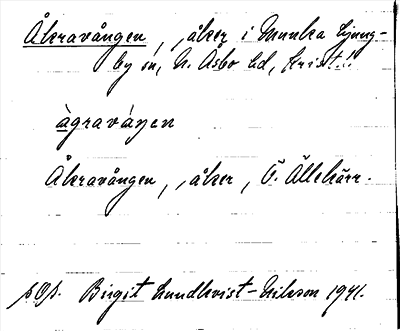 Åkravången, åker i Munka Ljung-
by sn, N. Åsbo hd, Krist. l.
àgraváŋen
Åkravången, åker, Ö. Ällekärr.
pOp. Birgit Lundkvist-Nilsson 1941.